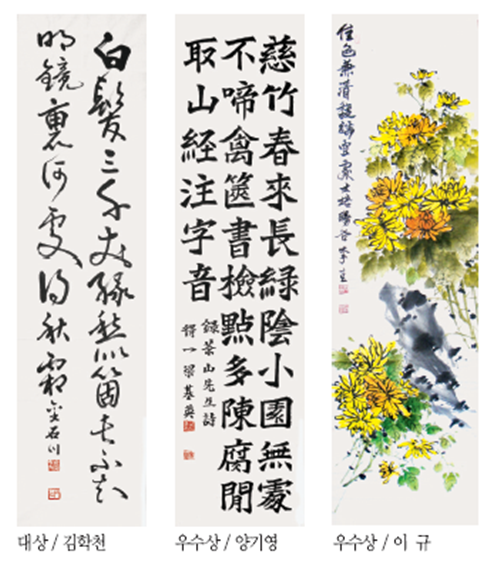 白髮三千丈緣愁似箇長不知
明鏡裏何處得秋霜金石川
慈竹春來長綠陰小園無處
不啼禽篋書檢點多陳腐閒
取山経注字音
山先生詩
一梁基英
佳色兼
대상 / 김학천
우수상 / 양기영
우수상 / 이 규